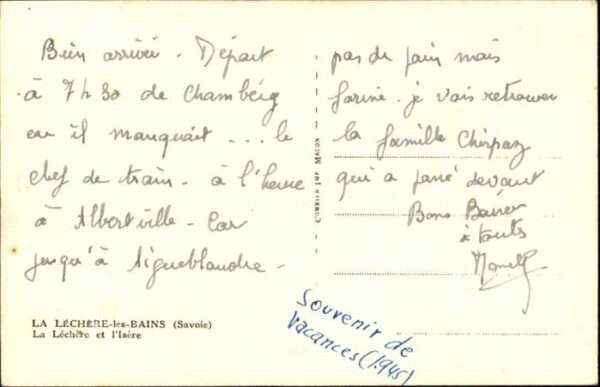 Bien arrivée - Départ
à 7h30 de Chambéry
car il manquait ... le
chef de train - à l'heure
à Albertville - Car
jusqu'à Aigueblanche -
pas de pain mais
farine - je vais retrouver
la famille Chirpaz
qui a passé devant
Bons Baisers
à toutes
COMBIER IMP. MACON
LA LÉCHÈRE-les-BAINS (Savoie)
La Léchère et l'Isère
Souvenir de
Vacances (1945)